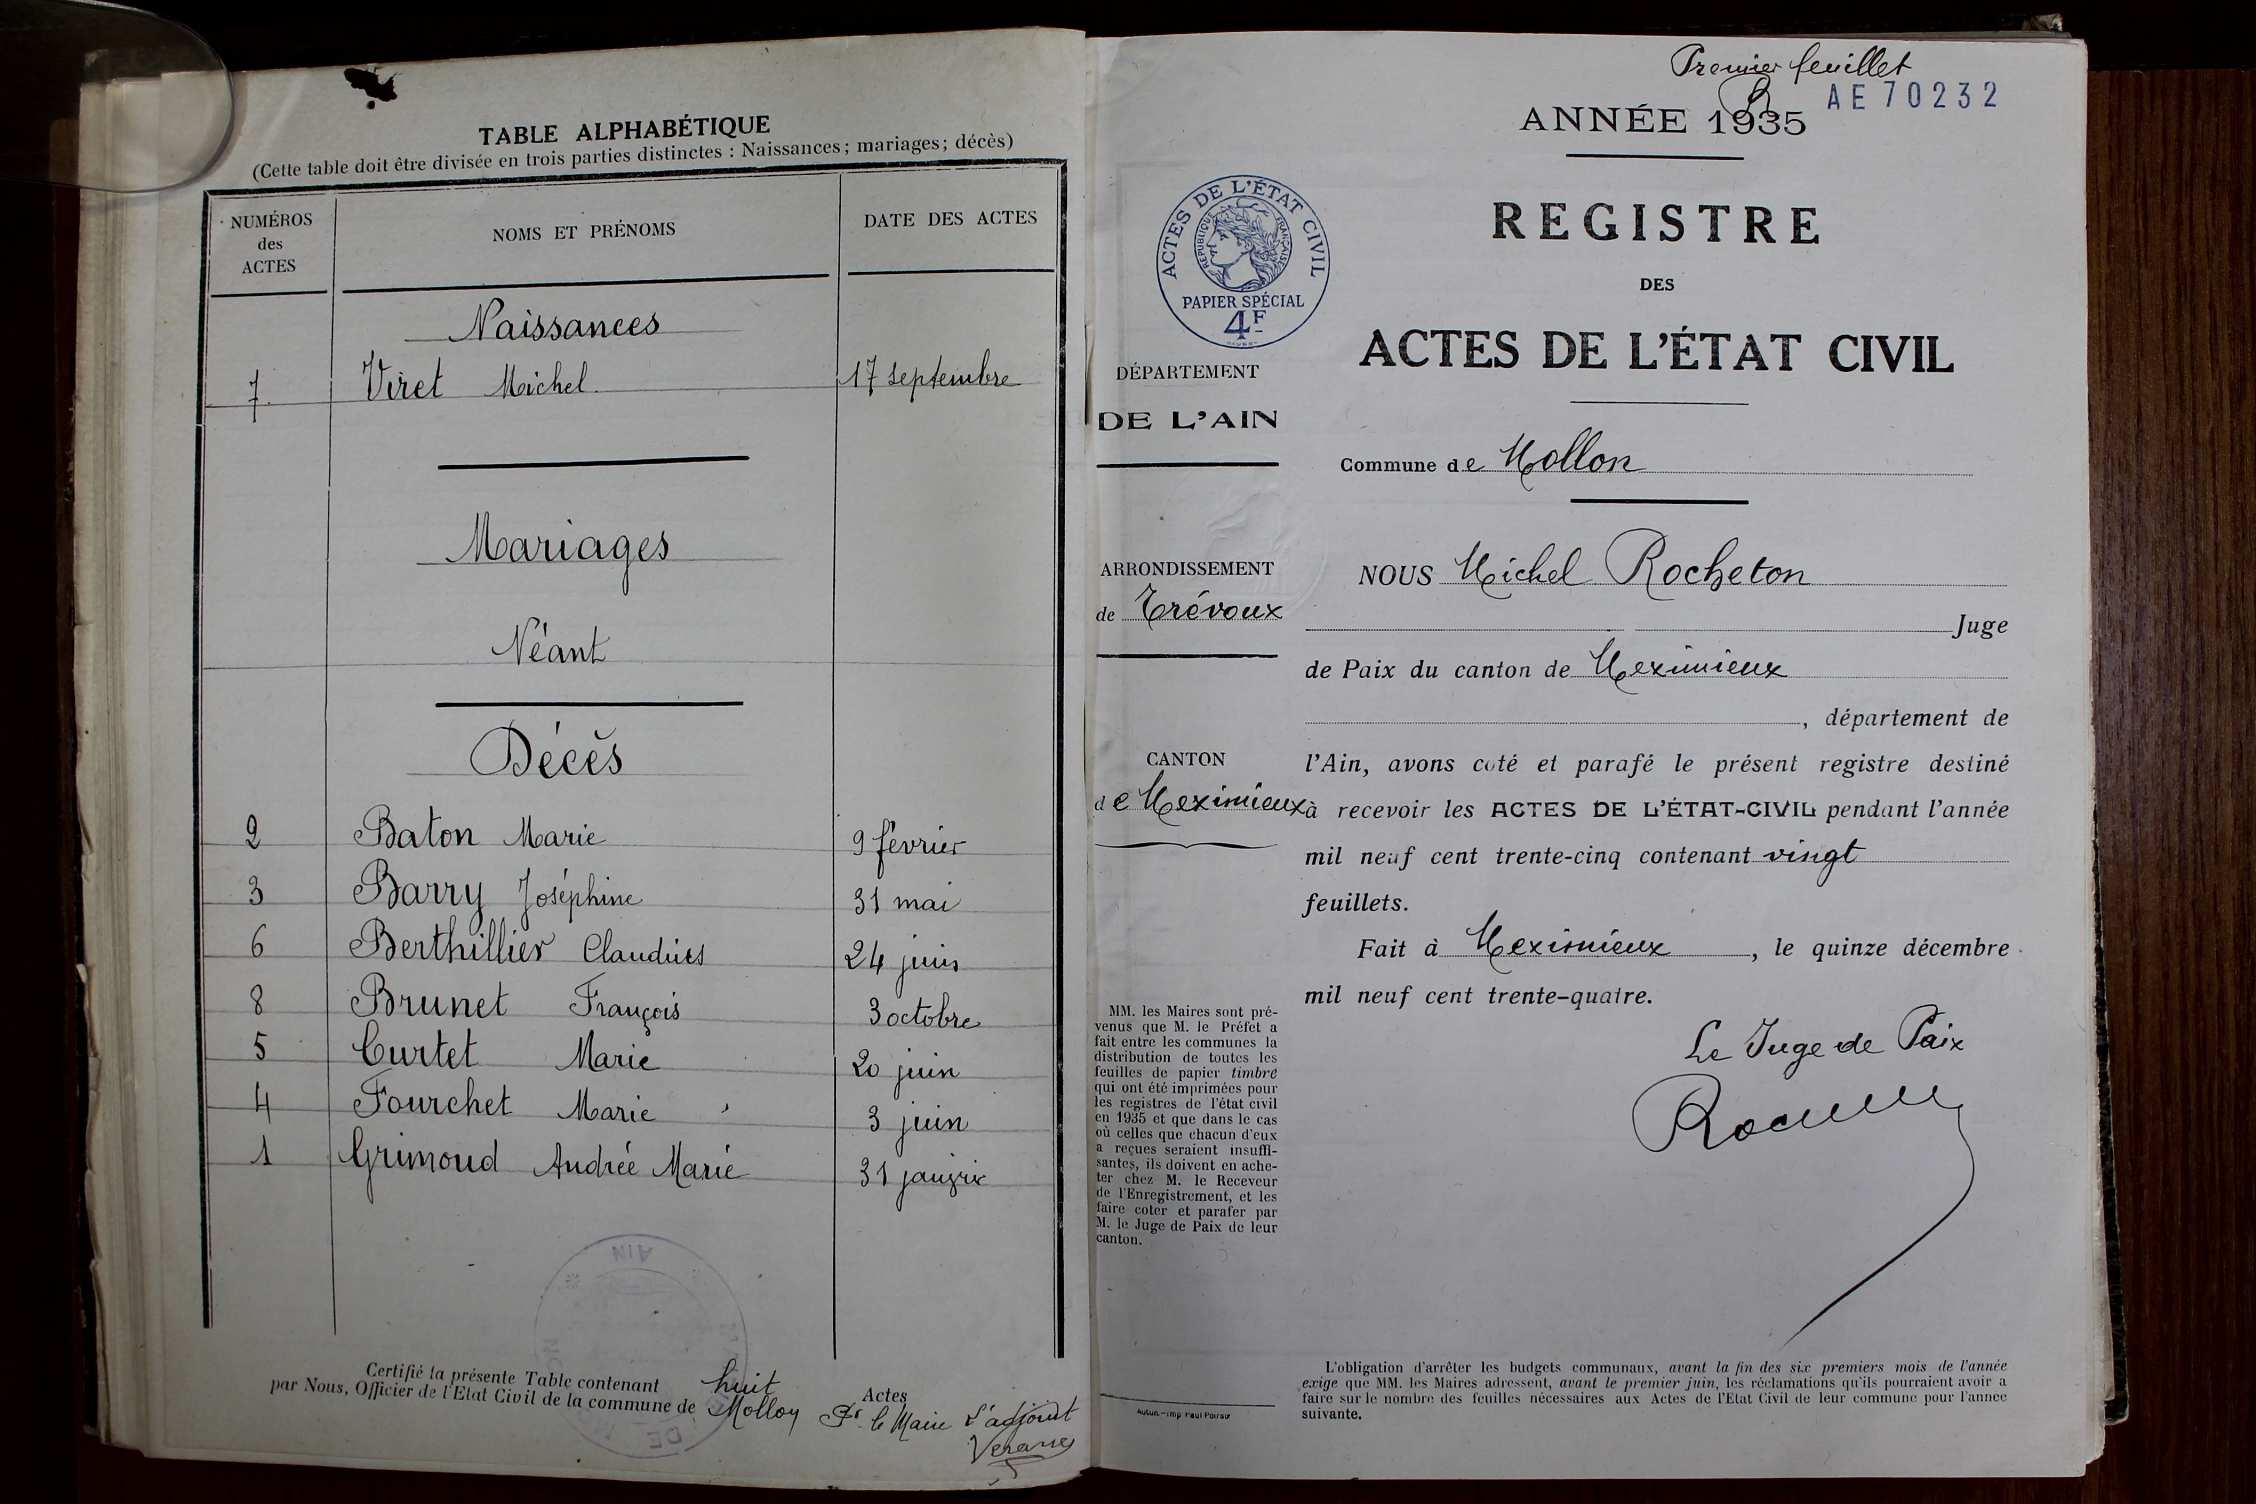 TABLE ALPHABÉTIQUE
(Cette table doit être divisée en trois parties distinctes : Naissances ; mariages ; décès)
NUMÉROS des ACTES NOMS ET PRÉNOMS DATE DES ACTES
Naissances
7 Viret Michel 17 septembre
Mariages
Néant
Décès
2 Baton Marie 9 février
3 Barry Joséphine 31 mai
6 Berthillier Claudius 24 juin
8 Brunet François 3 octobre
5 Curtet Marie 20 juin
4 Fourchet Marie 3 juin
1 Grimoud Andrée Marie 31 janvier
AIN
DE
Certifié la présente Table contenant huit Actes
par Nous, Officier de l'Etat Civil de la commune de Mollon
Pr le Maire L'adjoint
Premier feuillet
AE 70232
ANNÉE 1935
ACTES DE L'ÉTAT CIVIL
RÉPUBLIQUE FRANÇAISE
PAPIER SPÉCIAL
4F
REGISTRE
DES
ACTES DE L'ÉTAT CIVIL
DÉPARTEMENT
DE L'AIN
Commune de Mollon
ARRONDISSEMENT
de Trévoux
CANTON
de Meximieux
NOUS Michel Rocheton
Juge
de Paix du canton de Meximieux
, département de
l'Ain, avons coté et parafé le présent registre destiné
à recevoir les ACTES DE L'ÉTAT-CIVIL pendant l'année
mil neuf cent trente-cinq contenant vingt
feuillets.
Fait à Meximieux, le quinze décembre
mil neuf cent trente-quatre.
Le Juge de Paix
MM. les Maires sont pré-
venus que M. le Préfet a
fait entre les communes la
distribution de toutes les
feuilles de papier timbré
qui ont été imprimées pour
les registres de l'état civil
en 1935 et que dans le cas
où celles que chacun d'eux
a reçues seraient insuffi-
santes, ils doivent en ache-
ter chez M. le Receveur
de l'Enregistrement, et les
faire coter et parafer par
M. le Juge de Paix de leur
canton.
Autun. — Imp Paul Poirson
L'obligation d'arrêter les budgets communaux, avant la fin des six premiers mois de l'année
exige que MM. les Maires adressent, avant le premier juin, les réclamations qu'ils pourraient avoir à
faire sur le nombre des feuilles nécessaires aux Actes de l'Etat Civil de leur commune pour l'année
suivante.